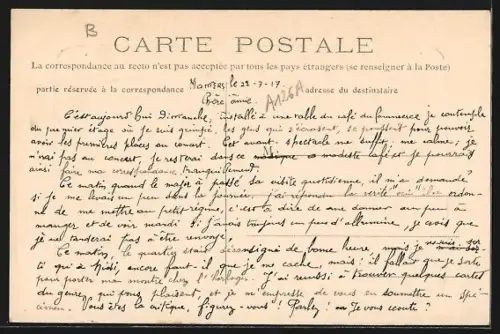 B
CARTE POSTALE
La correspondance au recto n'est pas acceptée par tous les pays étrangers (se renseigner à la Poste)
partie réservée à la correspondance
adresse du destinataire
Mamers, le 22-7-17
A126A
Chère amie,
C'est aujourd'hui dimanche, installé à une table du café du Commerce je contemple
du premier étage où je suis grimpé, les gens qui s'écrasent, se poussent pour pouvoir
avoir les premières places au concert. Cet avant-spectacle me suffit; me calme; je
n'irai pas au concert, je resterai dans ce modeste café et je pourrai
ainsi faire ma correspondance tranquillement.
Ce matin, quand le major a passé sa visite quotidienne, il m'a demandé
si je me levais un peu dans la journée, j'ai répondu la vérité "oui" ordon-
ne de me mettre au petit régime, c'est à dire de me donner un peu à
manger et de voir mardi si j'avais toujours un peu d'albumine, je crois que
je ne tarderai pas à être renvoyé,
Ce matin, le quartier était déconsigné de bonne heure, mais je
ti qu'à midi, encore faut-il que je me cache, mais il fallait que je sorte
pour porter ma montre chez l'horloger. J'ai réussi à trouver quelques cartes
du genre, qui vous plaisent et je m'empresse de vous en soumettre un spé-
cimen. Vous êtes la critique, figurez-vous! Parlez! on vous écoute?